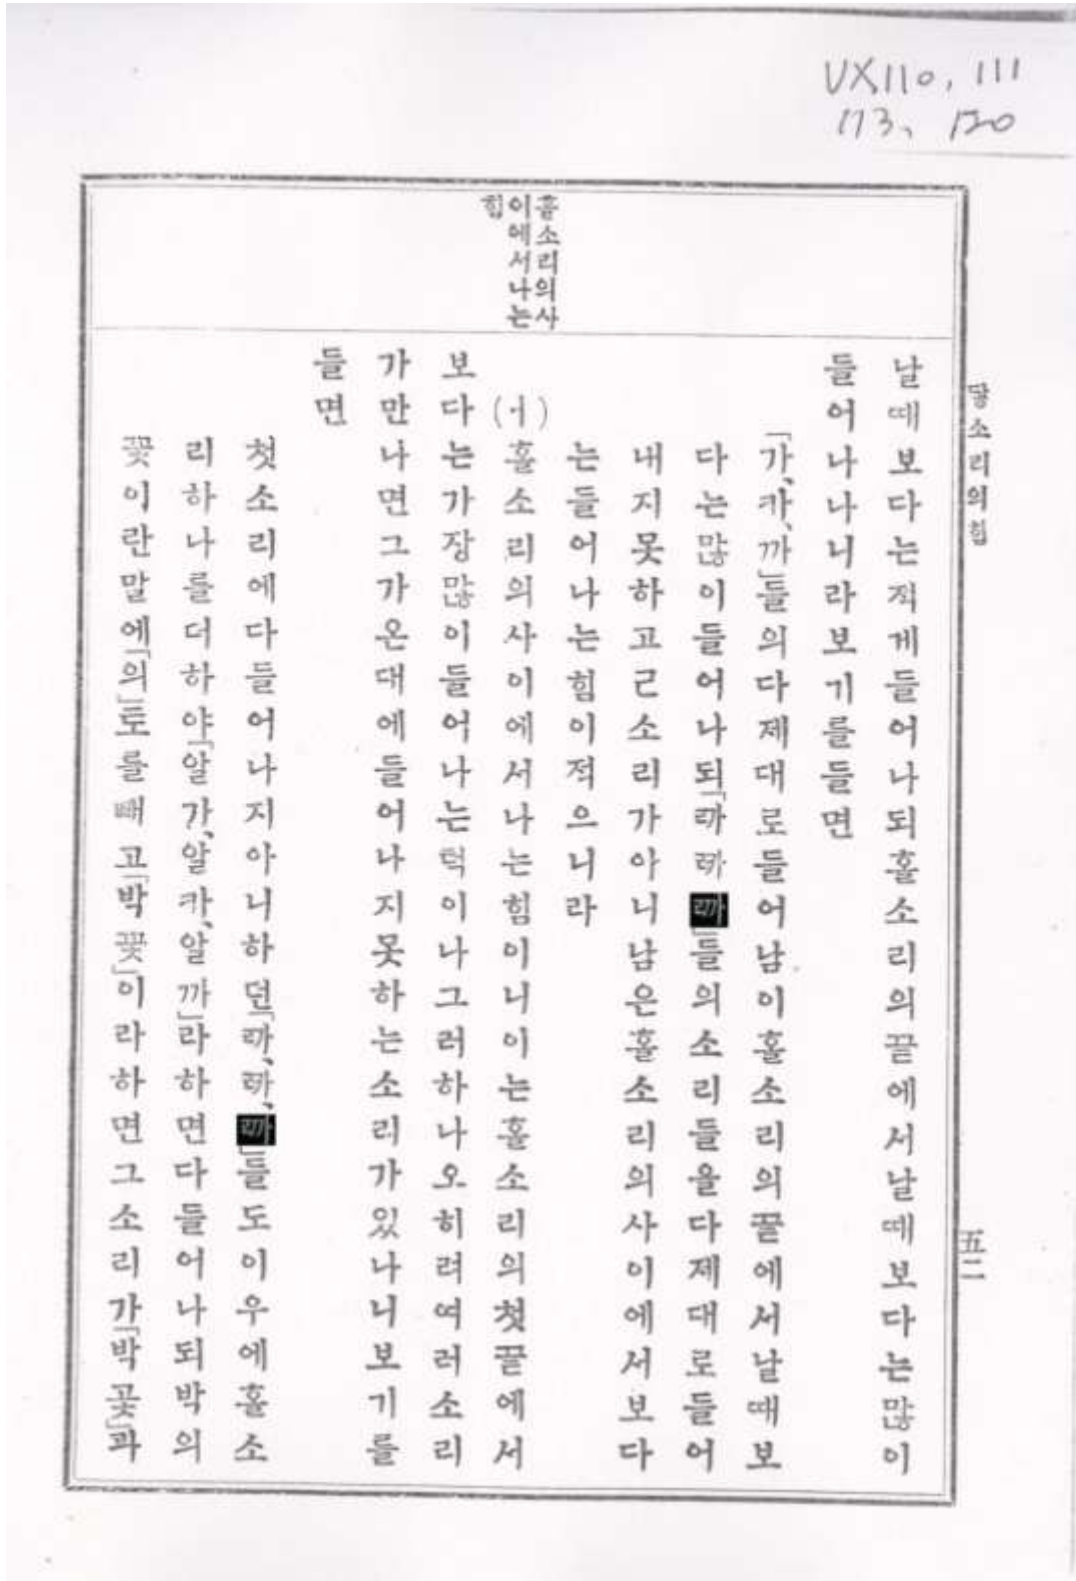 VX110, 111
113, 120
닿소리의힘
五二
홀소리의사
이에서나는
힘
날때보다는적게들어나되홀소리의끝에서날때보다는많이
들어나나니라보기를들면
「가、카、까」들의다제대로들어남이홀소리의끝에서날때보
다는많이들어나되「ꥤᅡ ꥥᅡ」들의소리들을다제대로들어
내지못하고근소리가아니남은홀소리의사이에서보다
는들어나는힘이적으니라
(ㅓ)홀소리의사이에서나는힘이니이는홀소리의첫끝에서
보다는가장많이들어나는턱이나그러하나오히려여러소리
가만나면그가온대에들어나지못하는소리가있나니보기를
들면
첫소리에다들어나지아니하던「ꥤᅡ、ꥥᅡ」들도이우에홀소
리하나를더하야「알가、알카、알까」라하면다들어나되박의
꽃이란말에「의」토를빼고「박꽃」이라하면그소리가「박곷」과